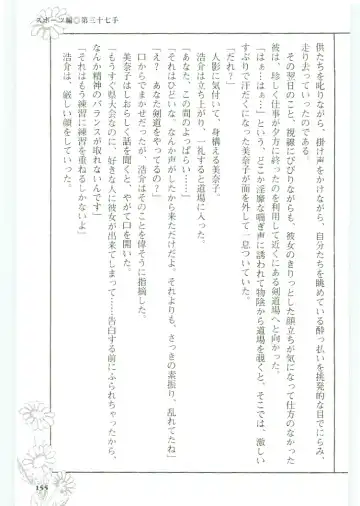 スポーツ編◎第三十七手
供たちを叱りながら、掛け声をかけながら、自分たちを眺めている酔っ払いを挑発的な目でにらみ、
走り去っていったのである。
その翌日のこと、視線にびびりながらも、彼女のきりっとした顔立ちが気になって仕方のない
彼は、珍しく仕事が夕方に終ったのを利用して近くにある剣道場へと向かった。
「はぁ…はぁ…」という、どこか淫靡な喘ぎ声に誘われて物陰から道場を覗くと、そこでは、激しい
すぶりで汗だくになった美奈子が面を外して一息ついていた。
「だれ?」
人影に気付いて、身構える美奈子。
浩介は立ち上がり、一礼すると道場に入った。
「あなた、この間のよっぱらい……」
「それはひどいな。なんか声がしたから来ただけだよ。それよりも、さっきの素振り、乱れてたね」
「え? あなた剣道をやってるの?」
口からでまかせだったが、浩介はそのことを偉そうに指摘した。
美奈子はしおらしく話を聞くと、やがて口を開いた。
「もうすぐ県大会なのに、好きな人に彼女が出来てしまって……告白する前にふられちゃったから、
なんか精神のバランスが取れないんです」
「それはもう練習に練習を重ねるしかないよ」
浩介は、厳しい顔をしていった。
155